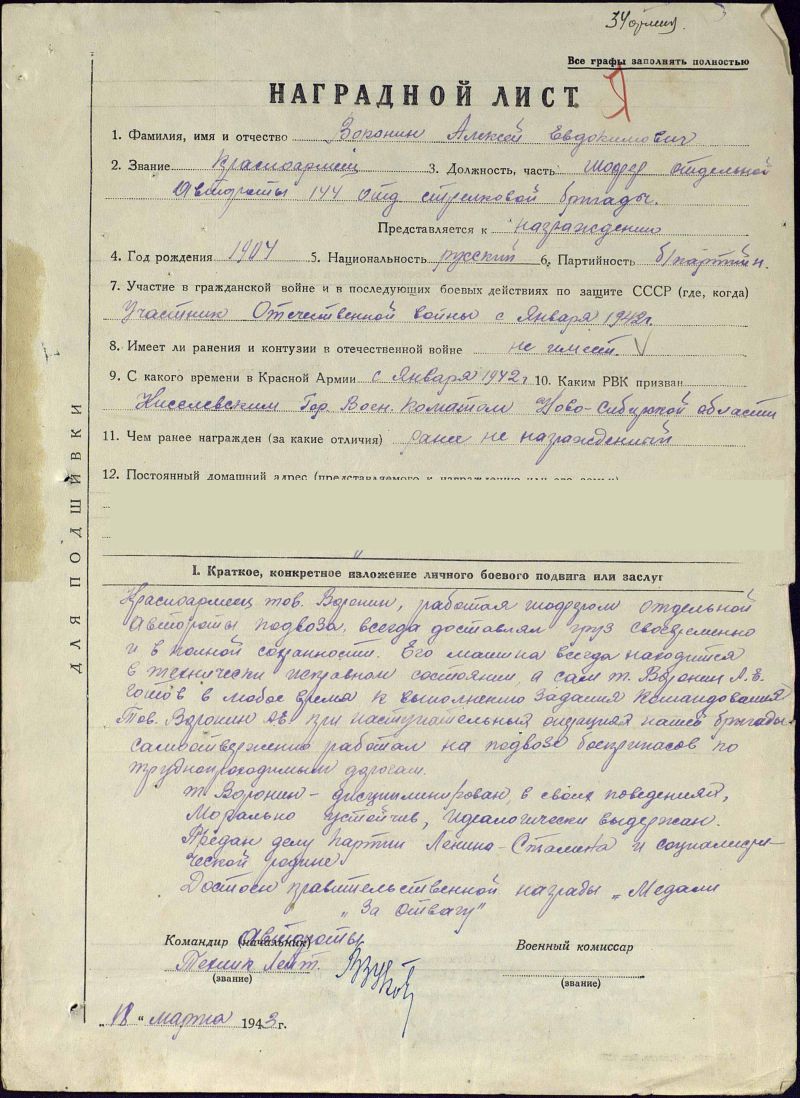 Все графы заполнять полностью
НАГРАДНОЙ ЛИСТ
1. Фамилия, имя и отчество Воронин Алексей Евдокимович
2. Звание Красноармеец 3. Должность, часть шофер отдельной
Автороты 144 отд стрелковой бригады.
Представляется к награждению
4. Год рождения 1904 5. Национальность русский 6. Партийность б/партийн.
7. Участие в гражданской войне и в последующих боевых действиях по защите СССР (где, когда)
Участник Отечественной войны с Января 1942г.
8. Имеет ли ранения и контузии в отечественной войне не имеет.
9. С какого времени в Красной Армии с Января 1942г 10. Каким РВК призван
Киселевским Гор. Воен. Коматом Ново-Сибирской области
11. Чем ранее награжден (за какие отличия) ранее не награжденный
12. Постоянный домашний адрес (представляемого к награждению или его семьи)
ДЛЯ ПОДШИВКИ
I. Краткое, конкретное изложение личного боевого подвига или заслуг
Красноармеец тов. Воронин, работая шофером отдельной
Автороты подвоза, всегда доставлял груз своевременно
и в полной сохранности. Его машина всегда находится
в технически исправном состоянии, а сам т. Воронин А.Е.
готов в любое время к выполнению задания командования
Тов. Воронин при наступательных операциях нашей бригады
самоотверженно работал на подвозе боеприпасов по
труднопроходимым дорогам.
т. Воронин - дисциплинирован, в своих поведениях,
Морально устойчив, идеалогически выдержан.
Предан делу партии Ленина-Сталина и социалисти-
ческой родине.
Достоен правительственной награды „Медали
„За отвагу"
Командир (начальник) Автороты
Техник Лейт.
(звание)
Военный комиссар
(звание)
„18" марта 1943 г.